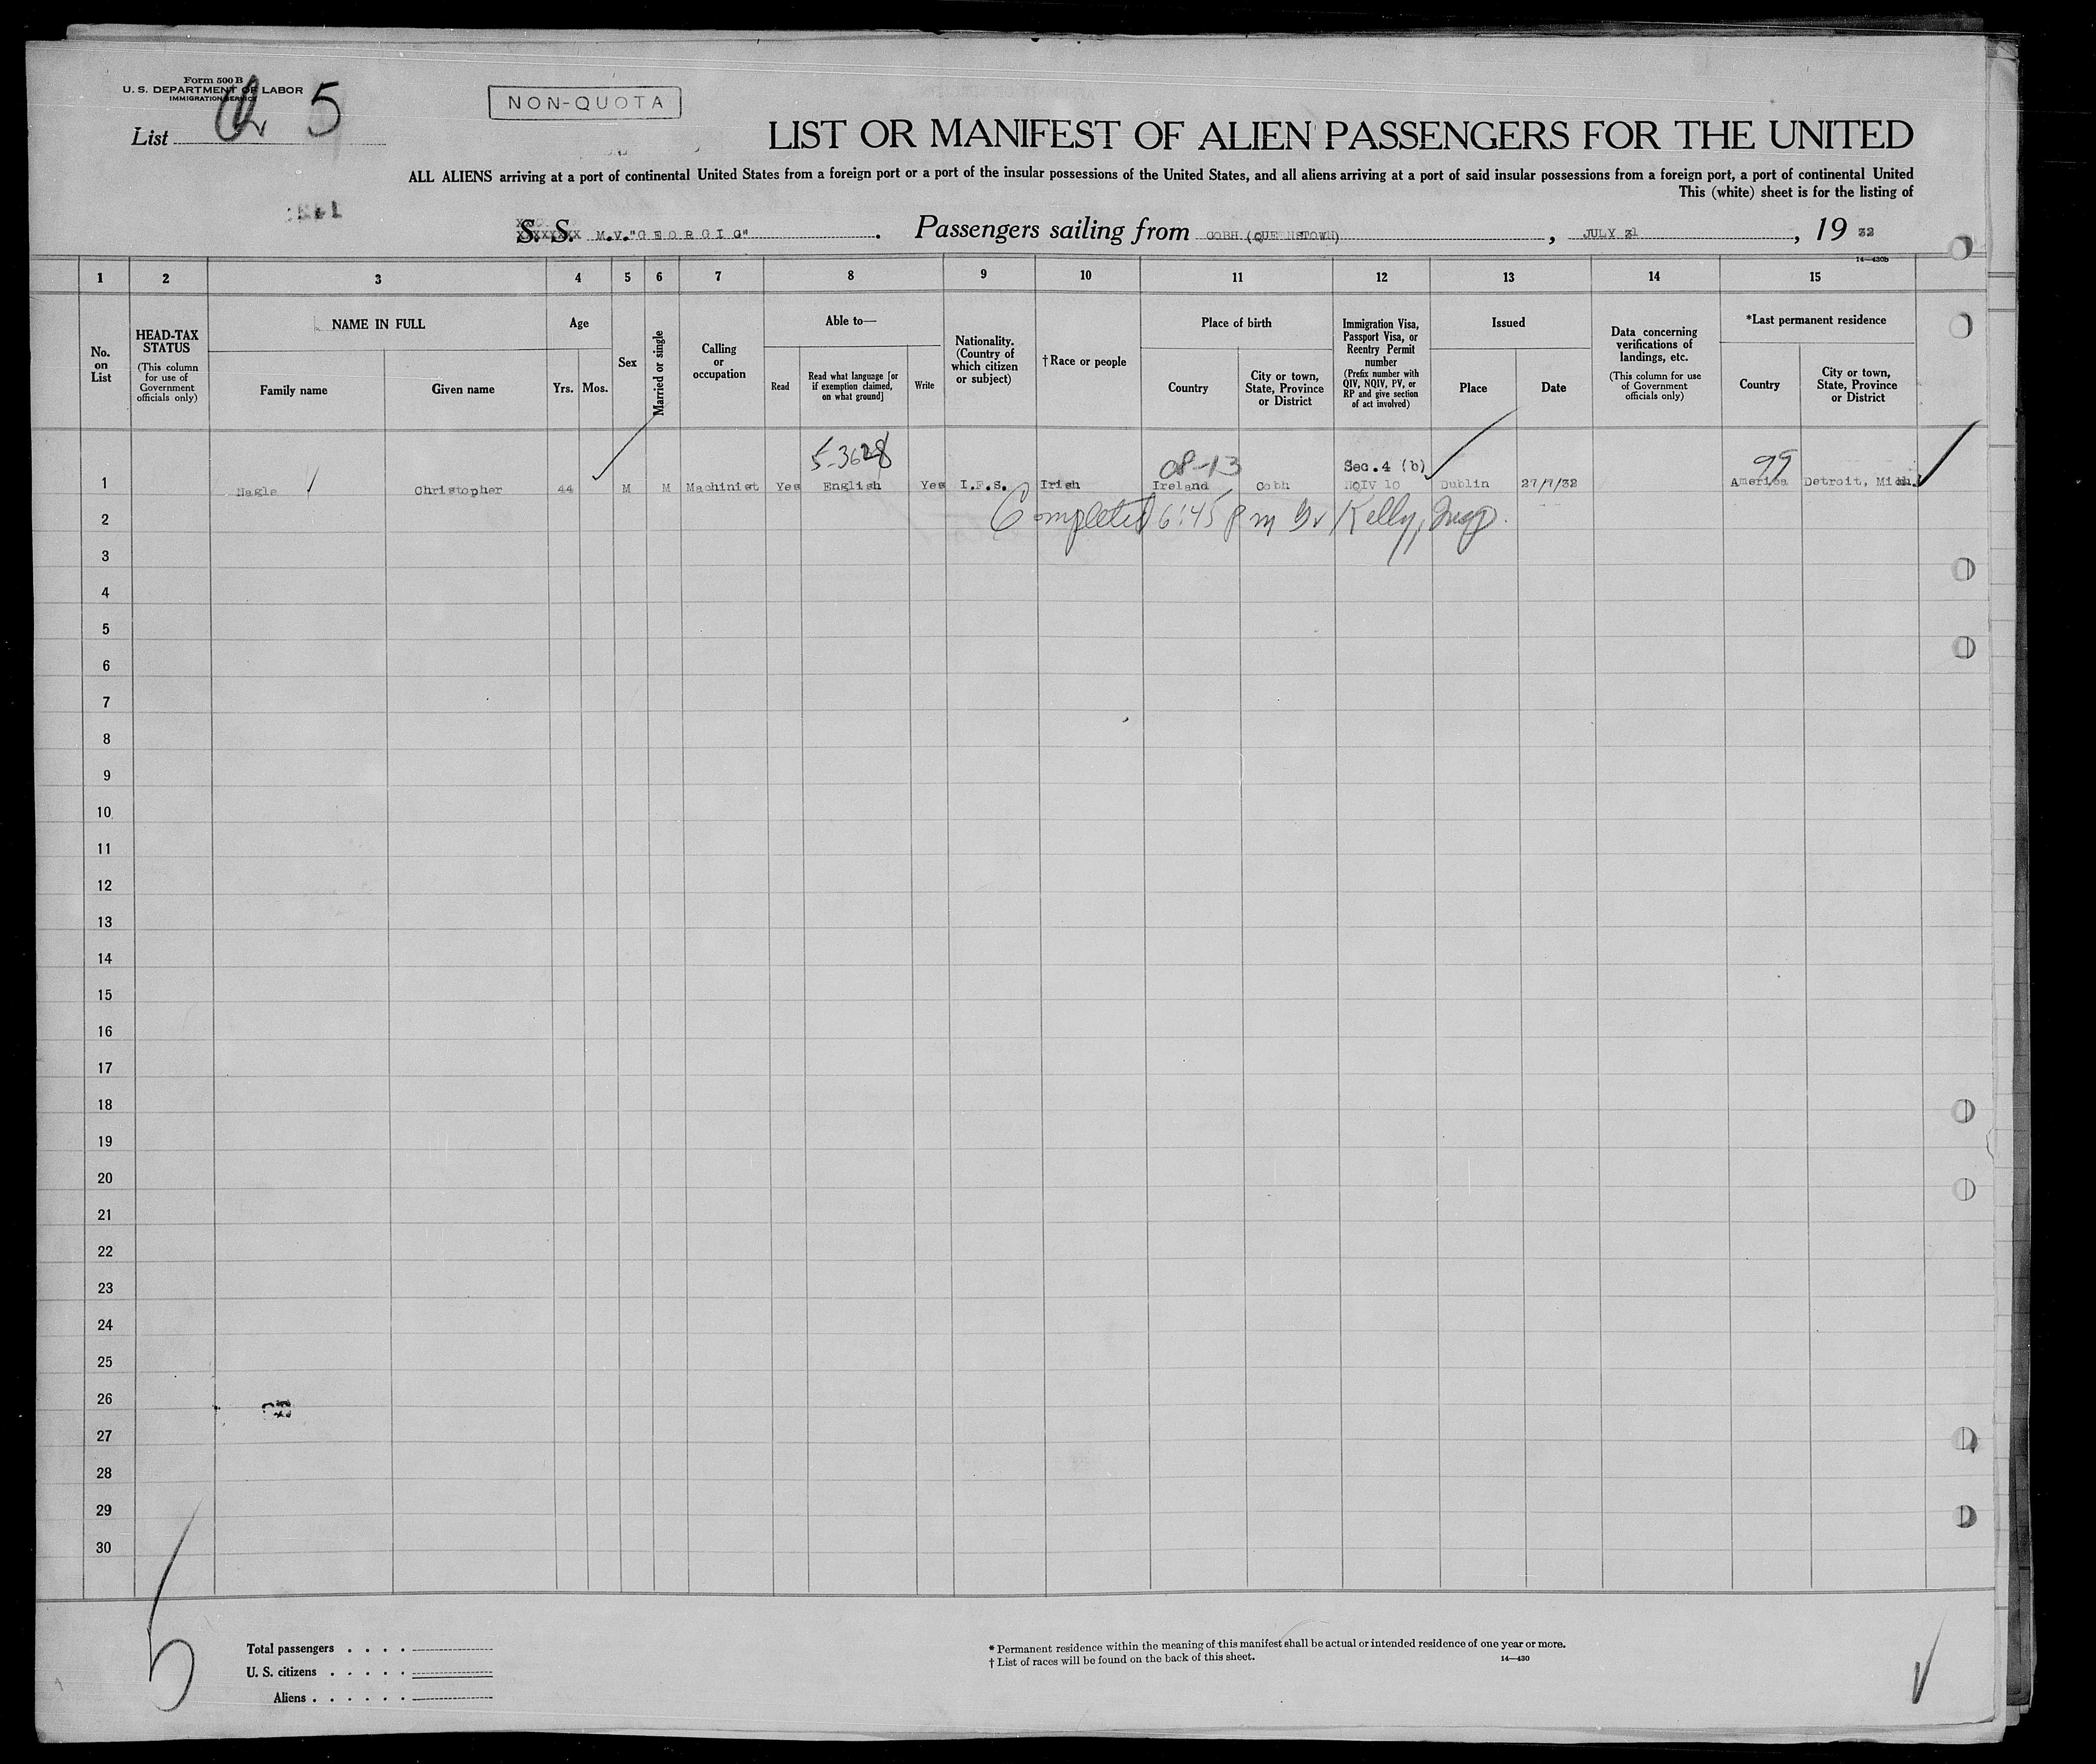 Form 500 B
U. S. DEPARTMENT OF LABOR
IMMIGRATION SERVICE
List 5
NON-QUOTA
LIST OR MANIFEST OF ALIEN PASSENGERS FOR THE UNITED
ALL ALIENS arriving at a port of continental United States from a foreign port or a port of the insular possessions of the United States, and all aliens arriving at a port of said insular possessions from a foreign port, a port of continental United
This (white) sheet is for the listing of
S. S. M.V."GEORGIC". Passengers sailing from COBH (QUEENSTOWN), JULY 31, 19 32
14—430b
1 2 3 4 5 6 7 8 9 10 11 12 13 14 15
No. on List
HEAD-TAX STATUS
(This column for use of Government officials only)
NAME IN FULL
Family name
Given name
Age
Yrs.
Mos.
Sex
Married or single
Calling or occupation
Able to—
Read
Read what language [or if exemption claimed, on what ground]
Write
Nationality. (Country of which citizen or subject)
†Race or people
Place of birth
Country
City or town, State, Province or District
Immigration Visa, Passport Visa, or Reentry Permit number
(Prefix number with QIV, NQIV, PV, or RP and give section of act involved)
Issued
Place
Date
Data concerning verifications of landings, etc.
(This column for use of Government officials only)
*Last permanent residence
Country
City or town, State, Province or District
5-3628 08-13 Sec.4 (b) 99
1 Nagle Christopher 44 M M Machinist Yes English Yes I.F.S. Irish Ireland Cobh NQIV 10 Dublin 27/7/32 America Detroit, Mich.
2 Completed 6:45 pm Kelly, Insp.
3
4
5
6
7
8
9
10
11
12
13
14
15
16
17
18
19
20
21
22
23
24
25
26
27
28
29
30
5
Total passengers . . . .
U. S. citizens . . . . .
Aliens . . . . . .
* Permanent residence within the meaning of this manifest shall be actual or intended residence of one year or more.
† List of races will be found on the back of this sheet.
14—430